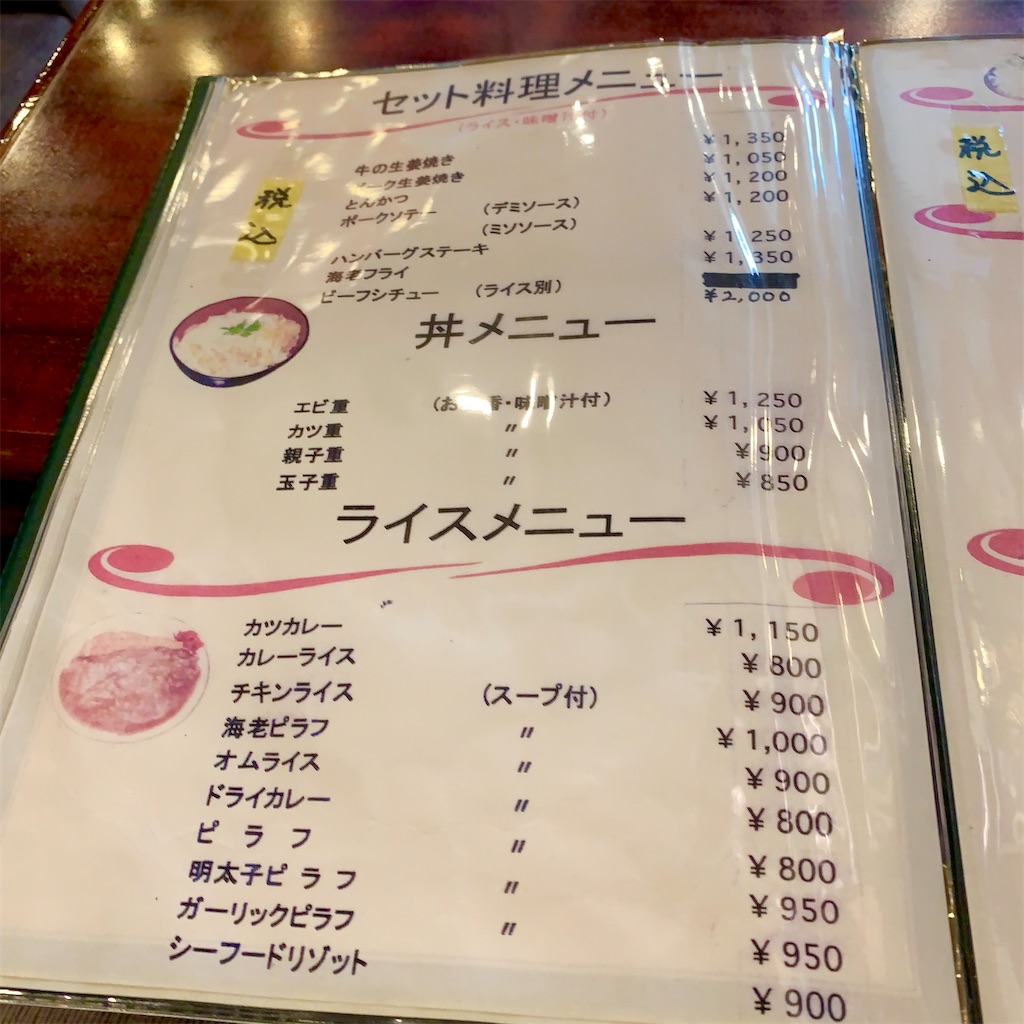 セット料理メニュー
(ライス・味噌汁付)
税込
牛の生姜焼き ¥1,350
ポーク生姜焼き ¥1,050
とんかつ ¥1,200
ポークソテー (デミソース) ¥1,200
(ミソソース)
ハンバーグステーキ ¥1,250
海老フライ ¥1,350
ビーフシチュー (ライス別) ¥2,000
丼メニュー
エビ重 (お新香・味噌汁付) ¥1,250
カツ重 〃 ¥1,050
親子重 〃 ¥900
玉子重 〃 ¥850
ライスメニュー
カツカレー ¥1,150
カレーライス ¥800
チキンライス (スープ付) ¥900
海老ピラフ 〃 ¥1,000
オムライス 〃 ¥900
ドライカレー 〃 ¥800
ピラフ 〃 ¥800
明太子ピラフ 〃 ¥950
ガーリックピラフ 〃 ¥950
シーフードリゾット ¥900
税込